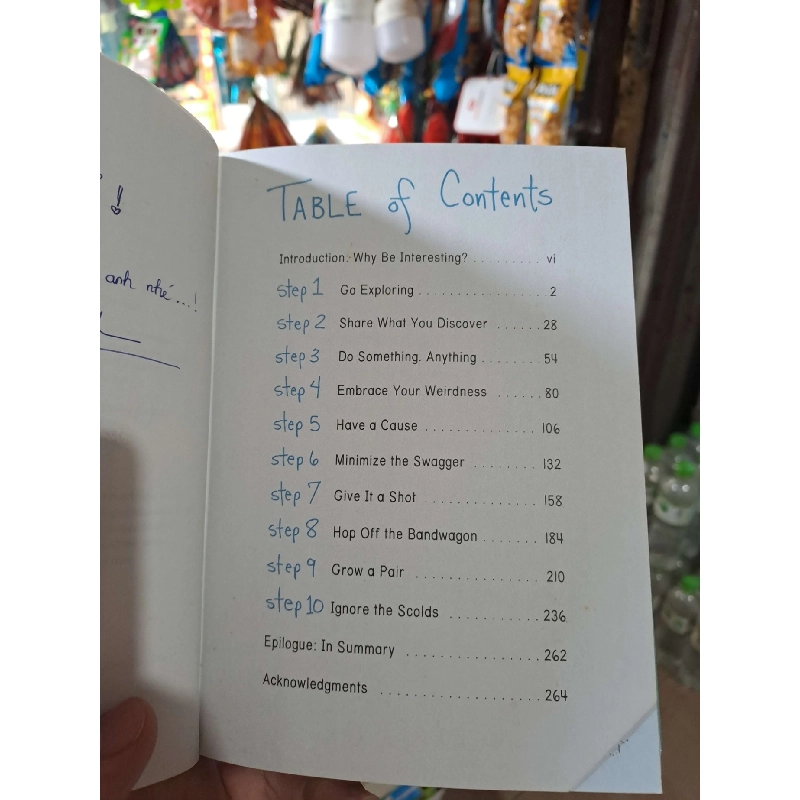 !
anh nhé...!
TABLE of Contents
Introduction: Why Be Interesting? ......... vi
step 1 Go Exploring ................ 2
step 2 Share What You Discover ...... 28
step 3 Do Something. Anything ....... 54
step 4 Embrace Your Weirdness ...... 80
step 5 Have a Cause ............. 106
step 6 Minimize the Swagger ........ 132
step 7 Give It a Shot ............. 158
step 8 Hop Off the Bandwagon ....... 184
step 9 Grow a Pair .............. 210
step 10 Ignore the Scolds ........... 236
Epilogue: In Summary ................. 262
Acknowledgments .................... 264